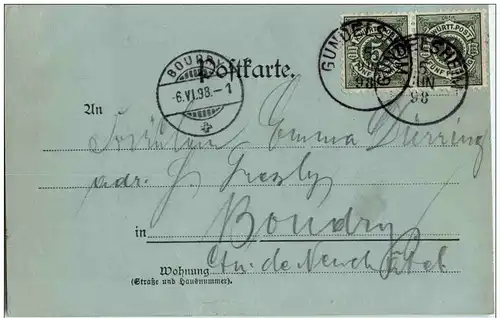 K. WÜRTT. POST
WÜRTT. POST
5
FÜNF PFENNIG
GUNDELSHEIM
JUN
98
BOUDRY
-6.VI.98.-1
Postkarte.
An
Fräulein Emma Dürring
adr. H. Gresly
in Boudry
Wohnung Ct. de Neuchâtel
(Straße und Hausnummer).